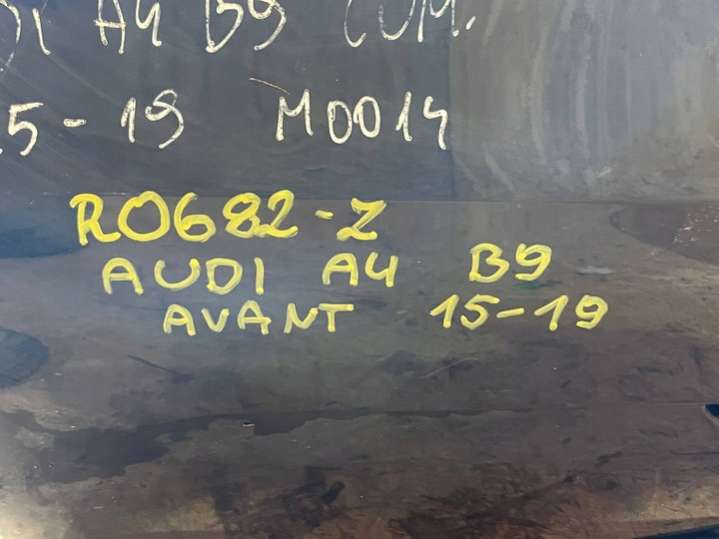 DI A4 B9 COM.
5-19 M0014
R0682-Z
AUDI A4 B9
AVANT 15-19